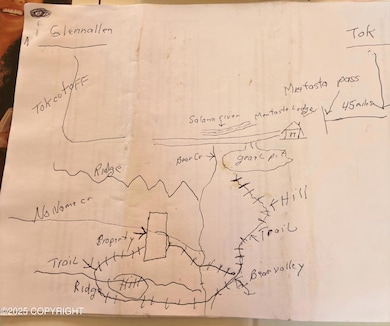 Glennallen
Tok
Tok cutoff
Mentasta pass
45 miles
Slana river
Mentasta Lodge
Bear Cr
gravel pit
Ridge
Hill
No Name cr
Trail
Property
Trail
Bear valley
Ridge
Hill
©2025 SOUTHEAST ALASKA MLS